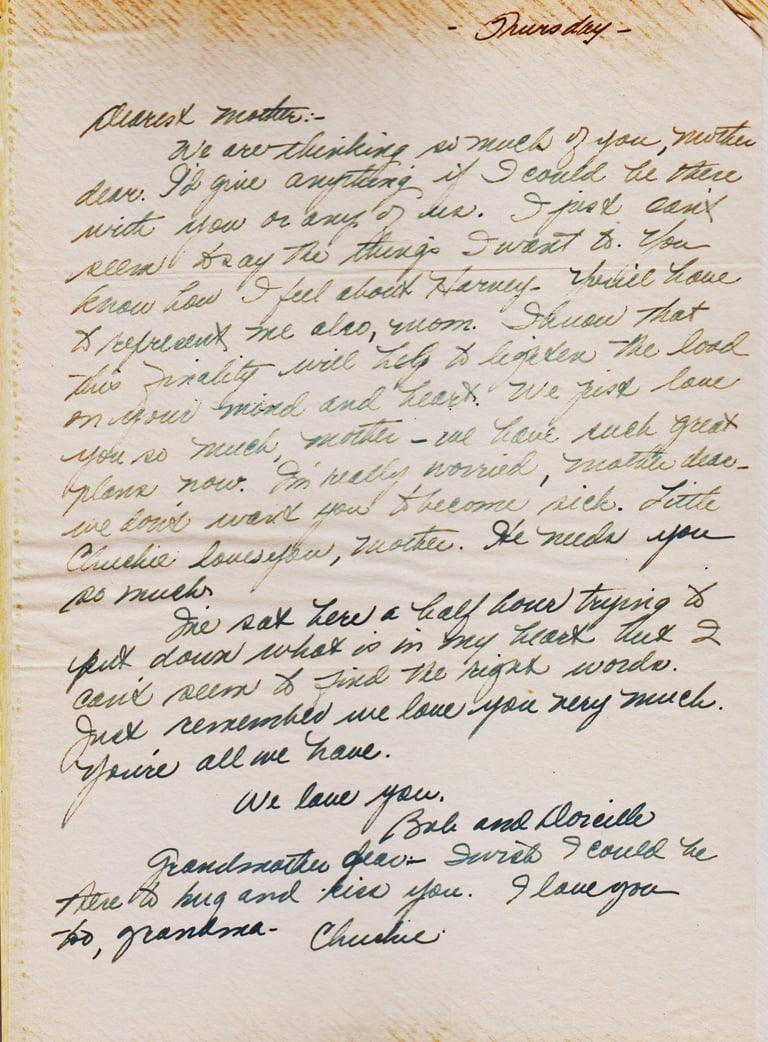 - Thursday -
Dearest Mother:-
We are thinking so much of you, Mother
dear. I'd give anything if I could be there
with you or any of us. I just can't
seem to say the things I want to. You
know how I feel about Harvey - You'll have
to represent me also, mom. I know that
this finality will help to lighten the load
on your mind and heart. We just love
you so much, Mother - we have such great
plans now. I'm really worried, Mother dear -
we don't want you to become sick. Little
Chuckie loves you, Mother. He needs you
so much.
I've sat here a half hour trying to
put down what is in my heart but I
can't seem to find the right words.
Just remember we love you very much.
You're all we have.
We love you.
Bob and
Grandmother dear:- I wish I could be
there to hug and kiss you. I love you
too, grandma - Chuckie.